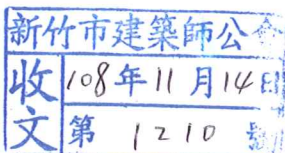 新竹市建築師公會
收文
108年11月14日
第 1210 號